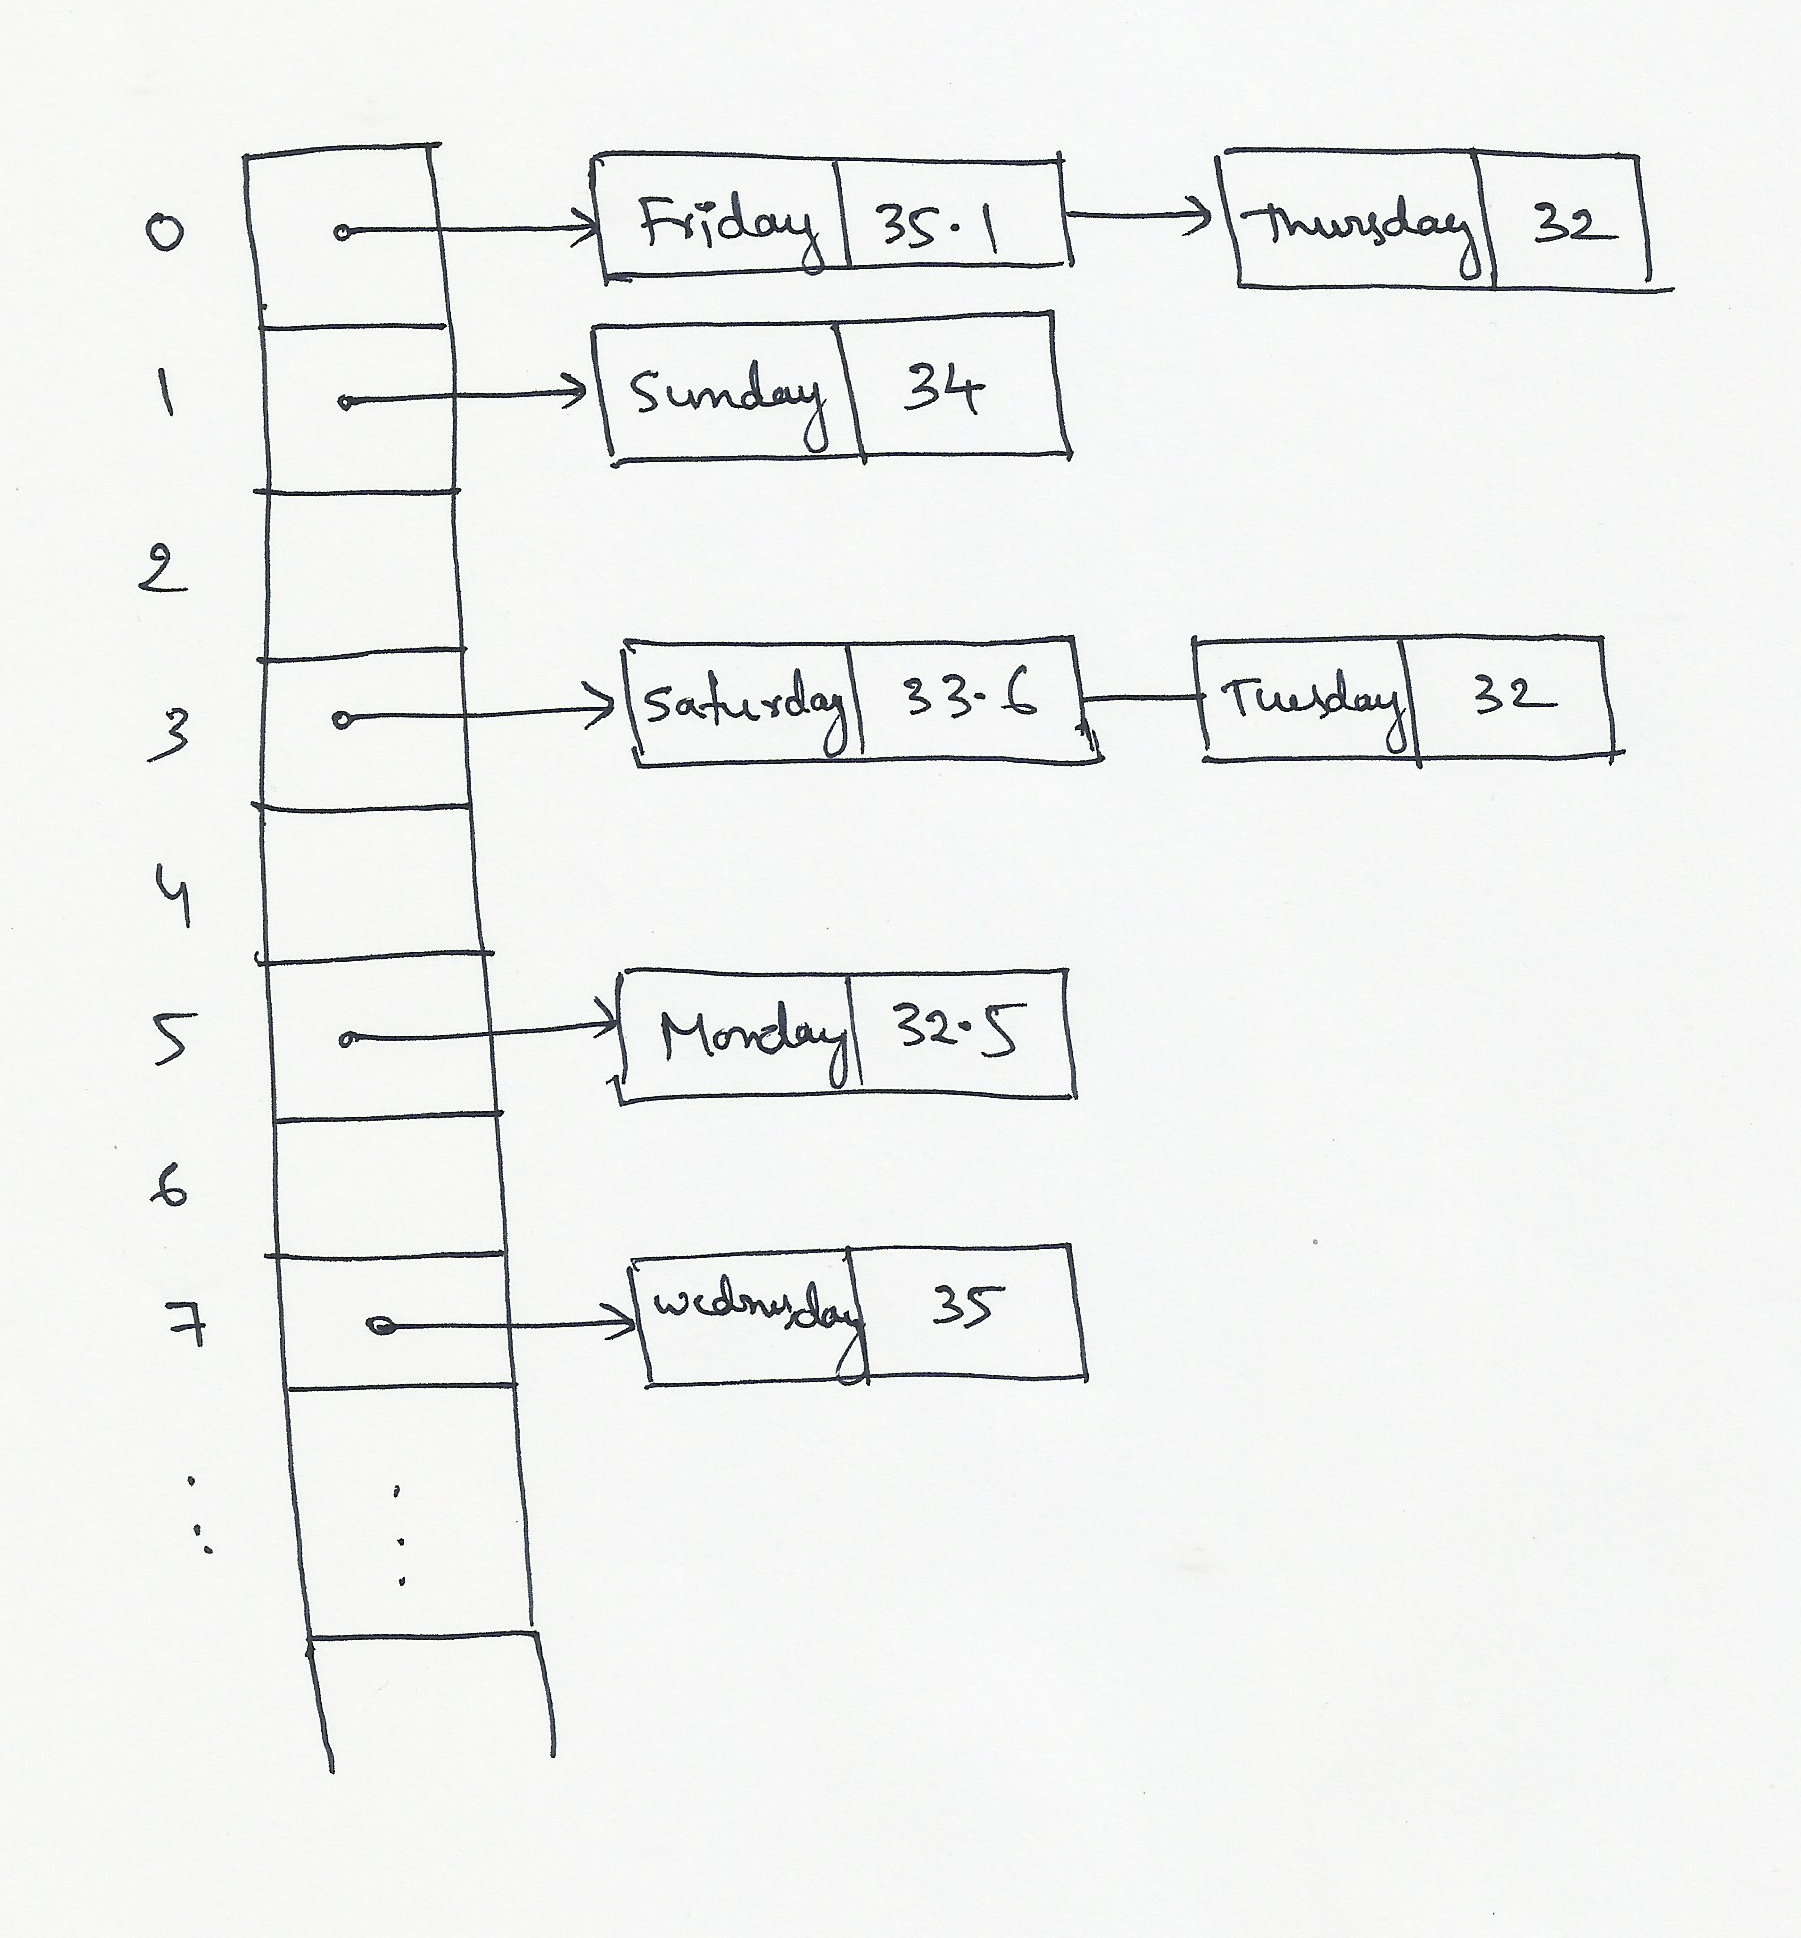 0 Friday 35.1 Thursday 32
1 Sunday 34
2
3 Saturday 33.6 Tuesday 32
4
5 Monday 32.5
6
7 Wednesday 35